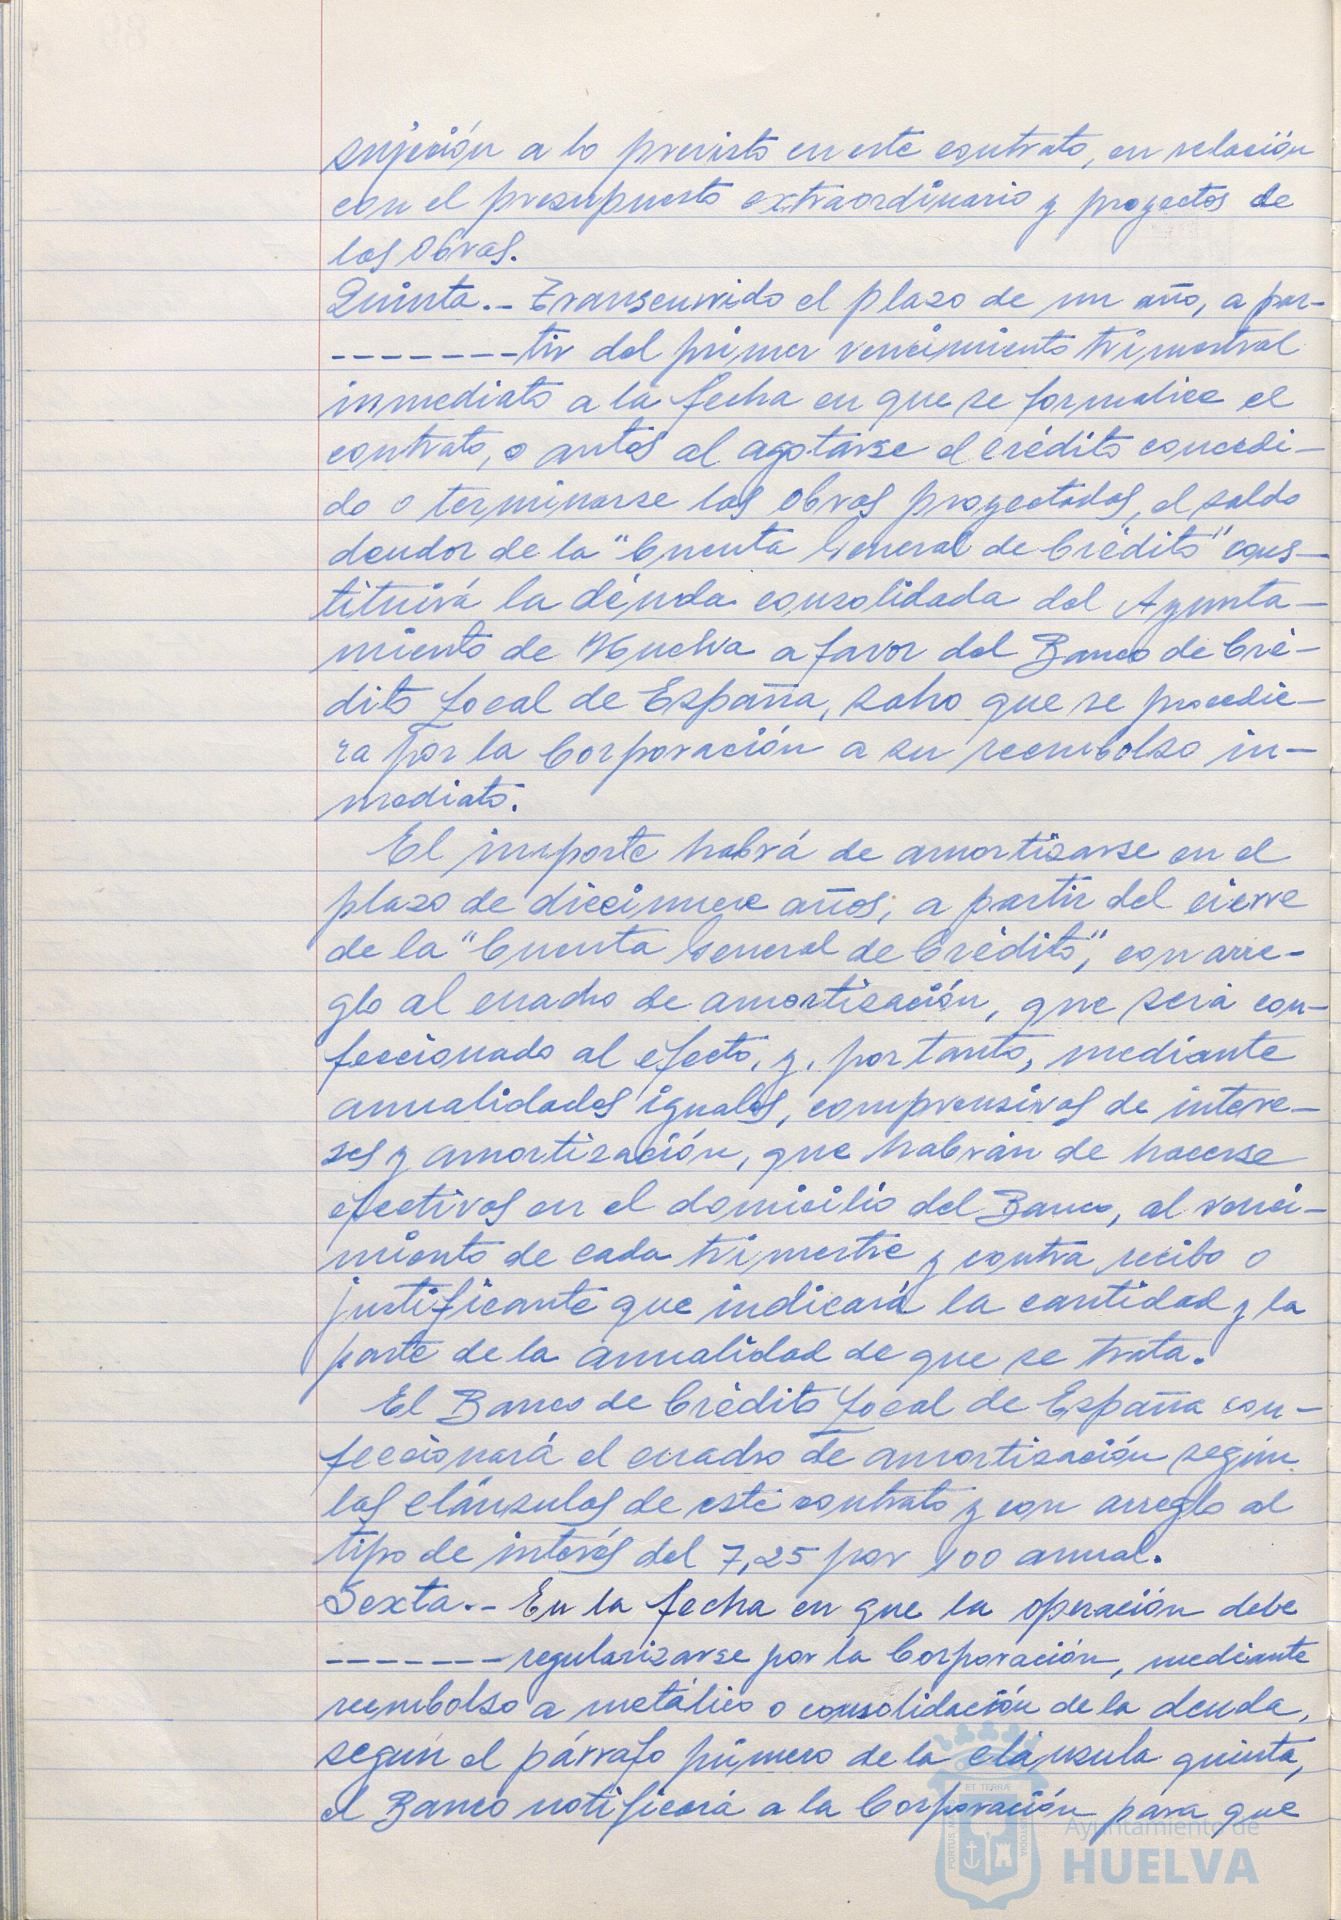 sujeción a lo previsto en este contrato, en relación
con el presupuesto extraordinario y proyectos de
las Obras.
Quinta.- Transcurrido el plazo de un año, a par-
-------tir del primer vencimiento trimestral
inmediato a la fecha en que se formalice el
contrato, o antes al agotarse el crédito concedi-
do o terminarse las Obras proyectadas, el saldo
deudor de la "Cuenta General de Crédito" cons-
tituirá la déuda consolidada del Ayunta-
miento de Huelva a favor del Banco de Cré-
dito Local de España, salvo que se procedie-
ra por la Corporación a su reembolso in-
mediato.
El importe habrá de amortizarse en el
plazo de diecinueve años, a partir del cierre
de la "Cuenta General de Crédito", con arre-
glo al cuadro de amortización, que será con-
feccionado al efecto, y, por tanto, mediante
anualidades iguales, comprensivas de intere-
ses y amortización, que habrán de hacerse
efectivas en el domicilio del Banco, al venci-
miento de cada trimestre y contra recibo o
justificante que indicará la cantidad y la
parte de la anualidad de que se trata.
El Banco de Crédito Local de España con-
feccionará el cuadro de amortización según
las cláusulas de este contrato y con arreglo al
tipo de interés del 7,25 por 100 anual.
Sexta.- En la fecha en que la operación debe
-------regularizarse por la Corporación, mediante
reembolso a metálico o consolidación de la deuda,
según el párrafo primero de la cláusula quinta,
el Banco notificará a la Corporación para que
Ayuntamiento de
HUELVA